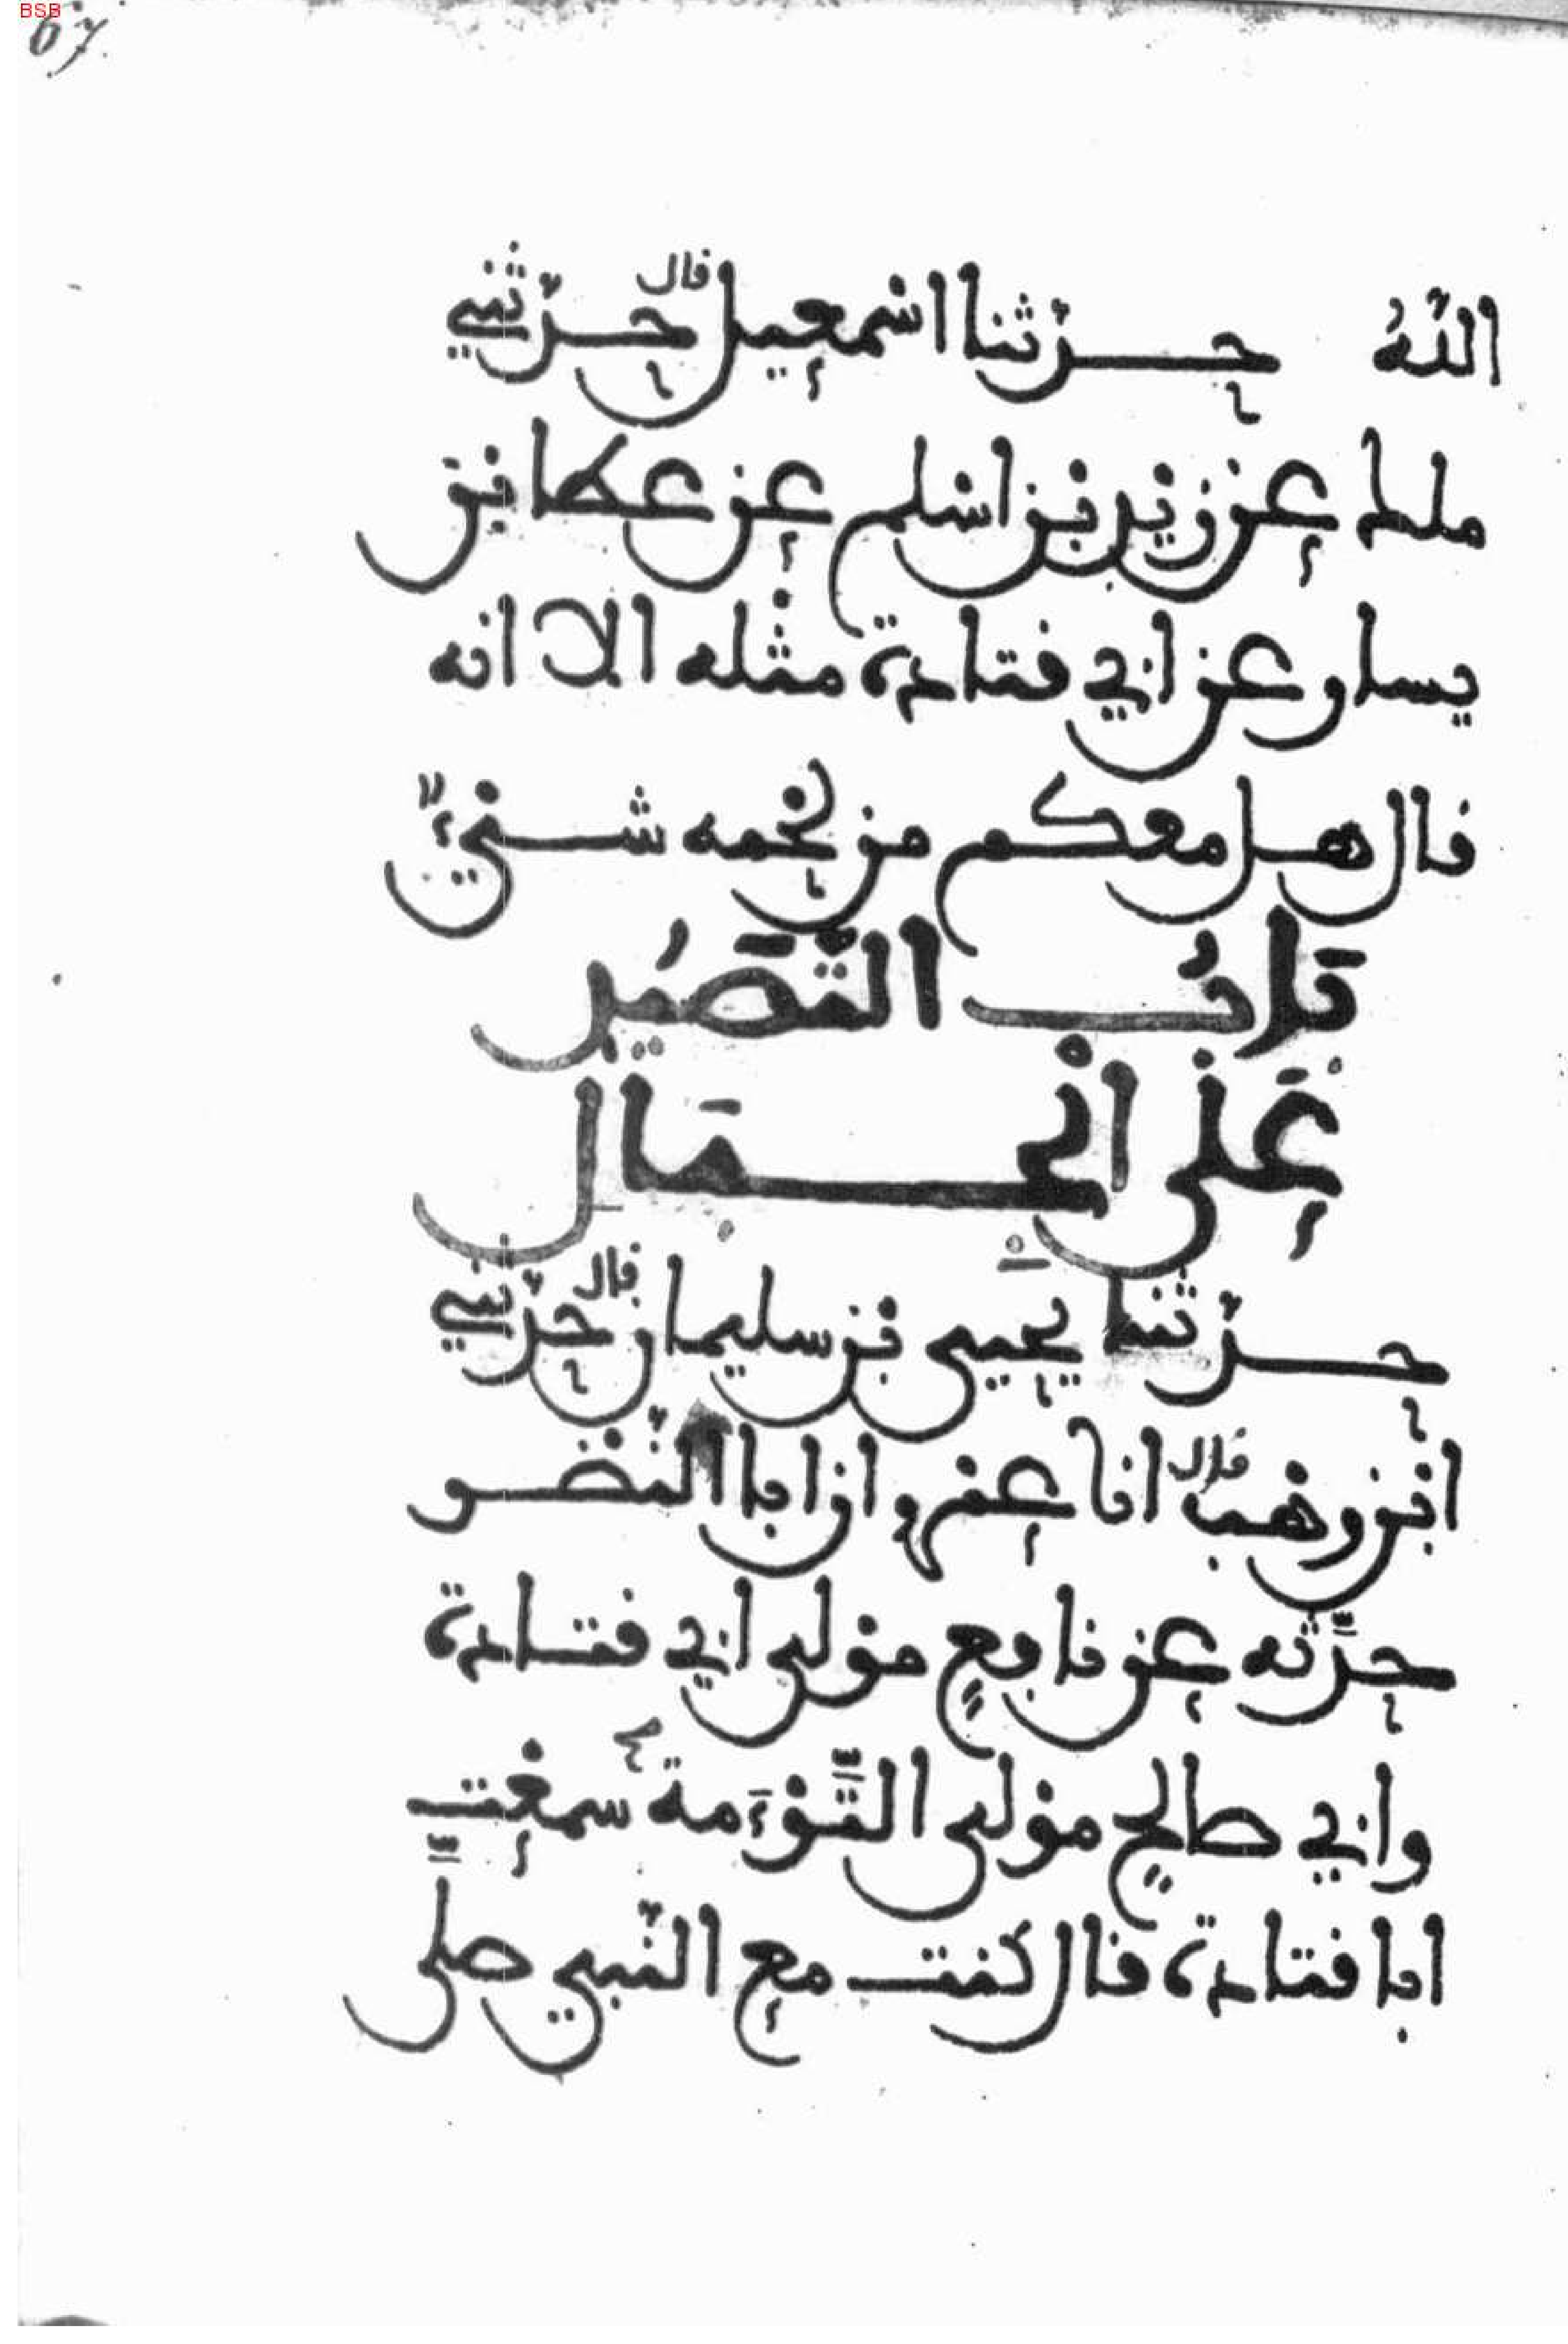 BSB
67
اللّٰهُ حدّثنا اسْمعيل قال حدّثني
ملك عن زيْد بْن اسْلم عن عطا بْن
يسار عن ابي قتادة مثْله الا انه
قال هل معكم من لحْمه شيْءٌ
بَابُ التَّصَيُّدِ
عَلَى الْجِبَالِ
حدّثنا يحيى بْن سليمان قال حدّثني
ابْن وهْب قال انا عمْرو ان ابا النّضْر
حدَّثه عن نافعٍ موْلى ابي قتادة
وابي صالحٍ موْلى التَّوْءَمة سمعْت
ابا قتادة قال كنْت مع النّبي صلَّى